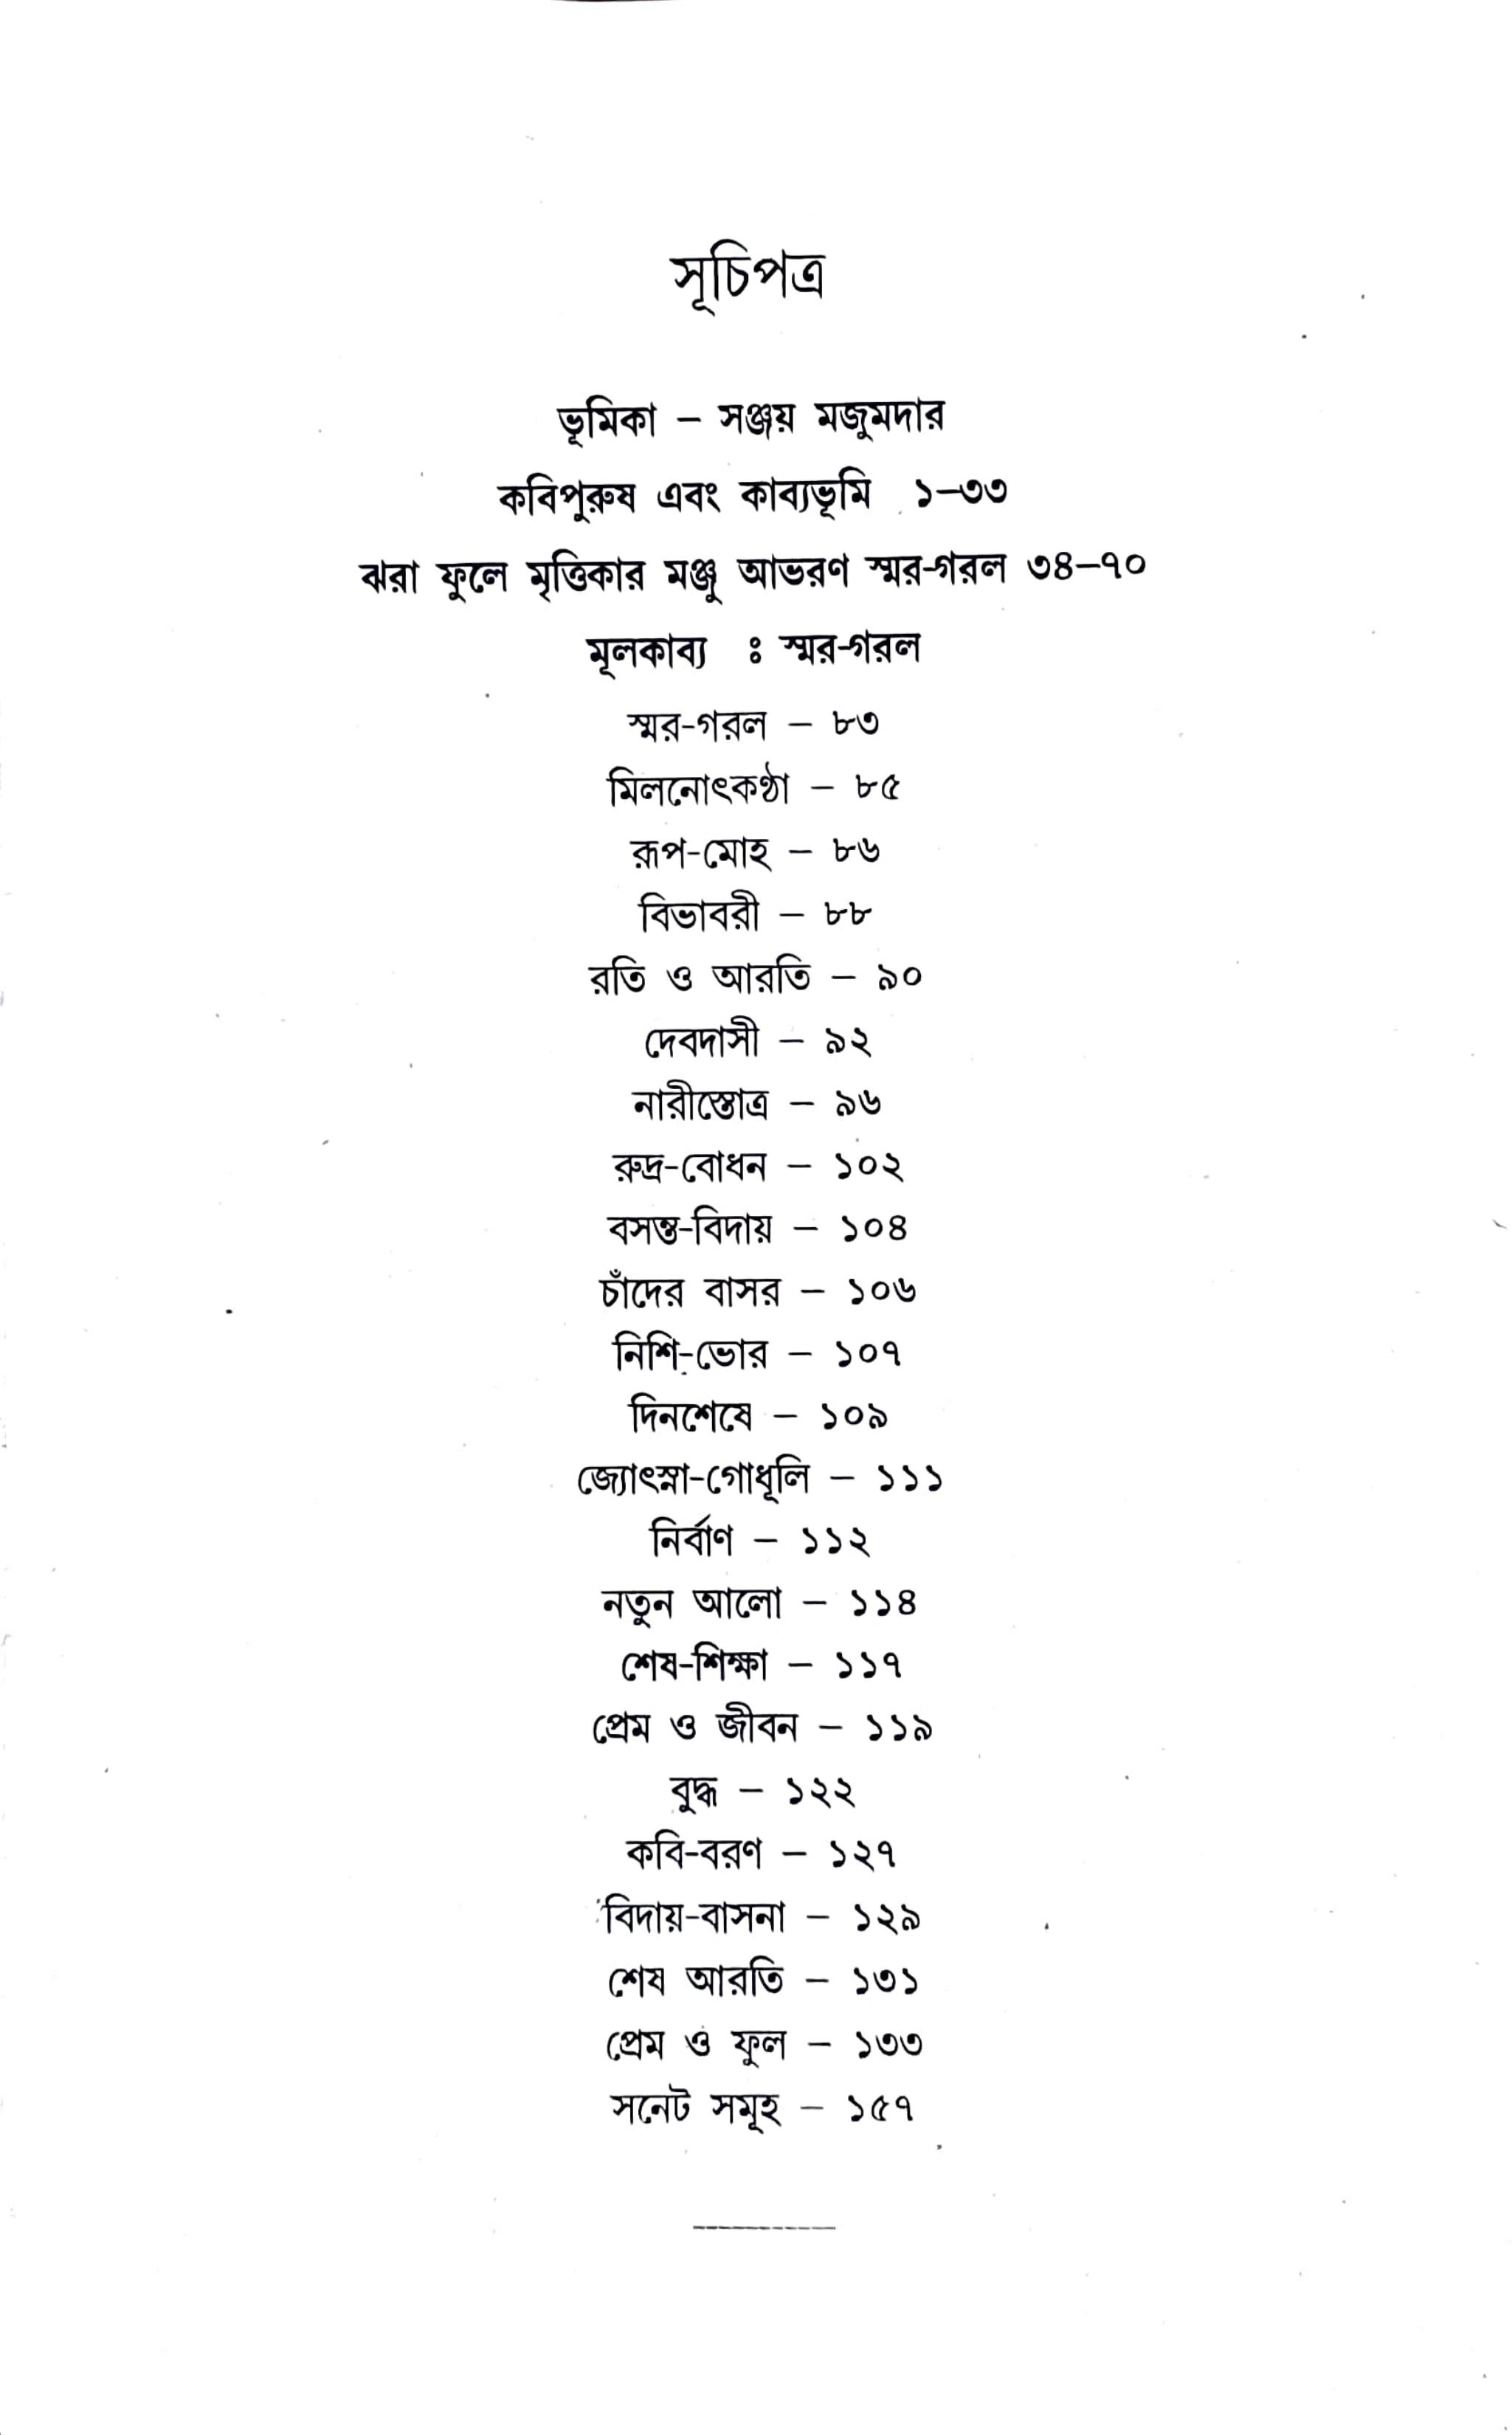 সূচিপত্র
ভূমিকা – সঞ্জয় মজুমদার
কবিপুরুষ এবং কাব্যভূমি ১–৩৩
ঝরা ফুলে মৃত্তিকার মঞ্জু আভরণ স্মর-গরল ৩৪–৭০
মূলকাব্য ঃ স্মর-গরল
স্মর-গরল – ৮৩
মিলনোৎকণ্ঠা – ৮৫
রূপ-মোহ – ৮৬
বিভাবরী – ৮৮
রতি ও আরতি – ৯০
দেবদাসী – ৯২
নারীস্তোত্র – ৯৬
রুদ্র-বোধন – ১০২
বসন্ত-বিদায় – ১০৪
চাঁদের বাসর – ১০৬
নিশি-ভোর – ১০৭
দিনশেষে – ১০৯
জ্যোৎস্না-গোধূলি – ১১১
নির্বাণ – ১১২
নতুন আলো – ১১৪
শেষ-শিক্ষা – ১১৭
প্রেম ও জীবন – ১১৯
বুদ্ধ – ১২২
কবি-বরণ – ১২৭
বিদায়-বাসনা – ১২৯
শেষ আরতি – ১৩১
প্রেম ও ফুল – ১৩৩
সনেট সমূহ – ১৫৭